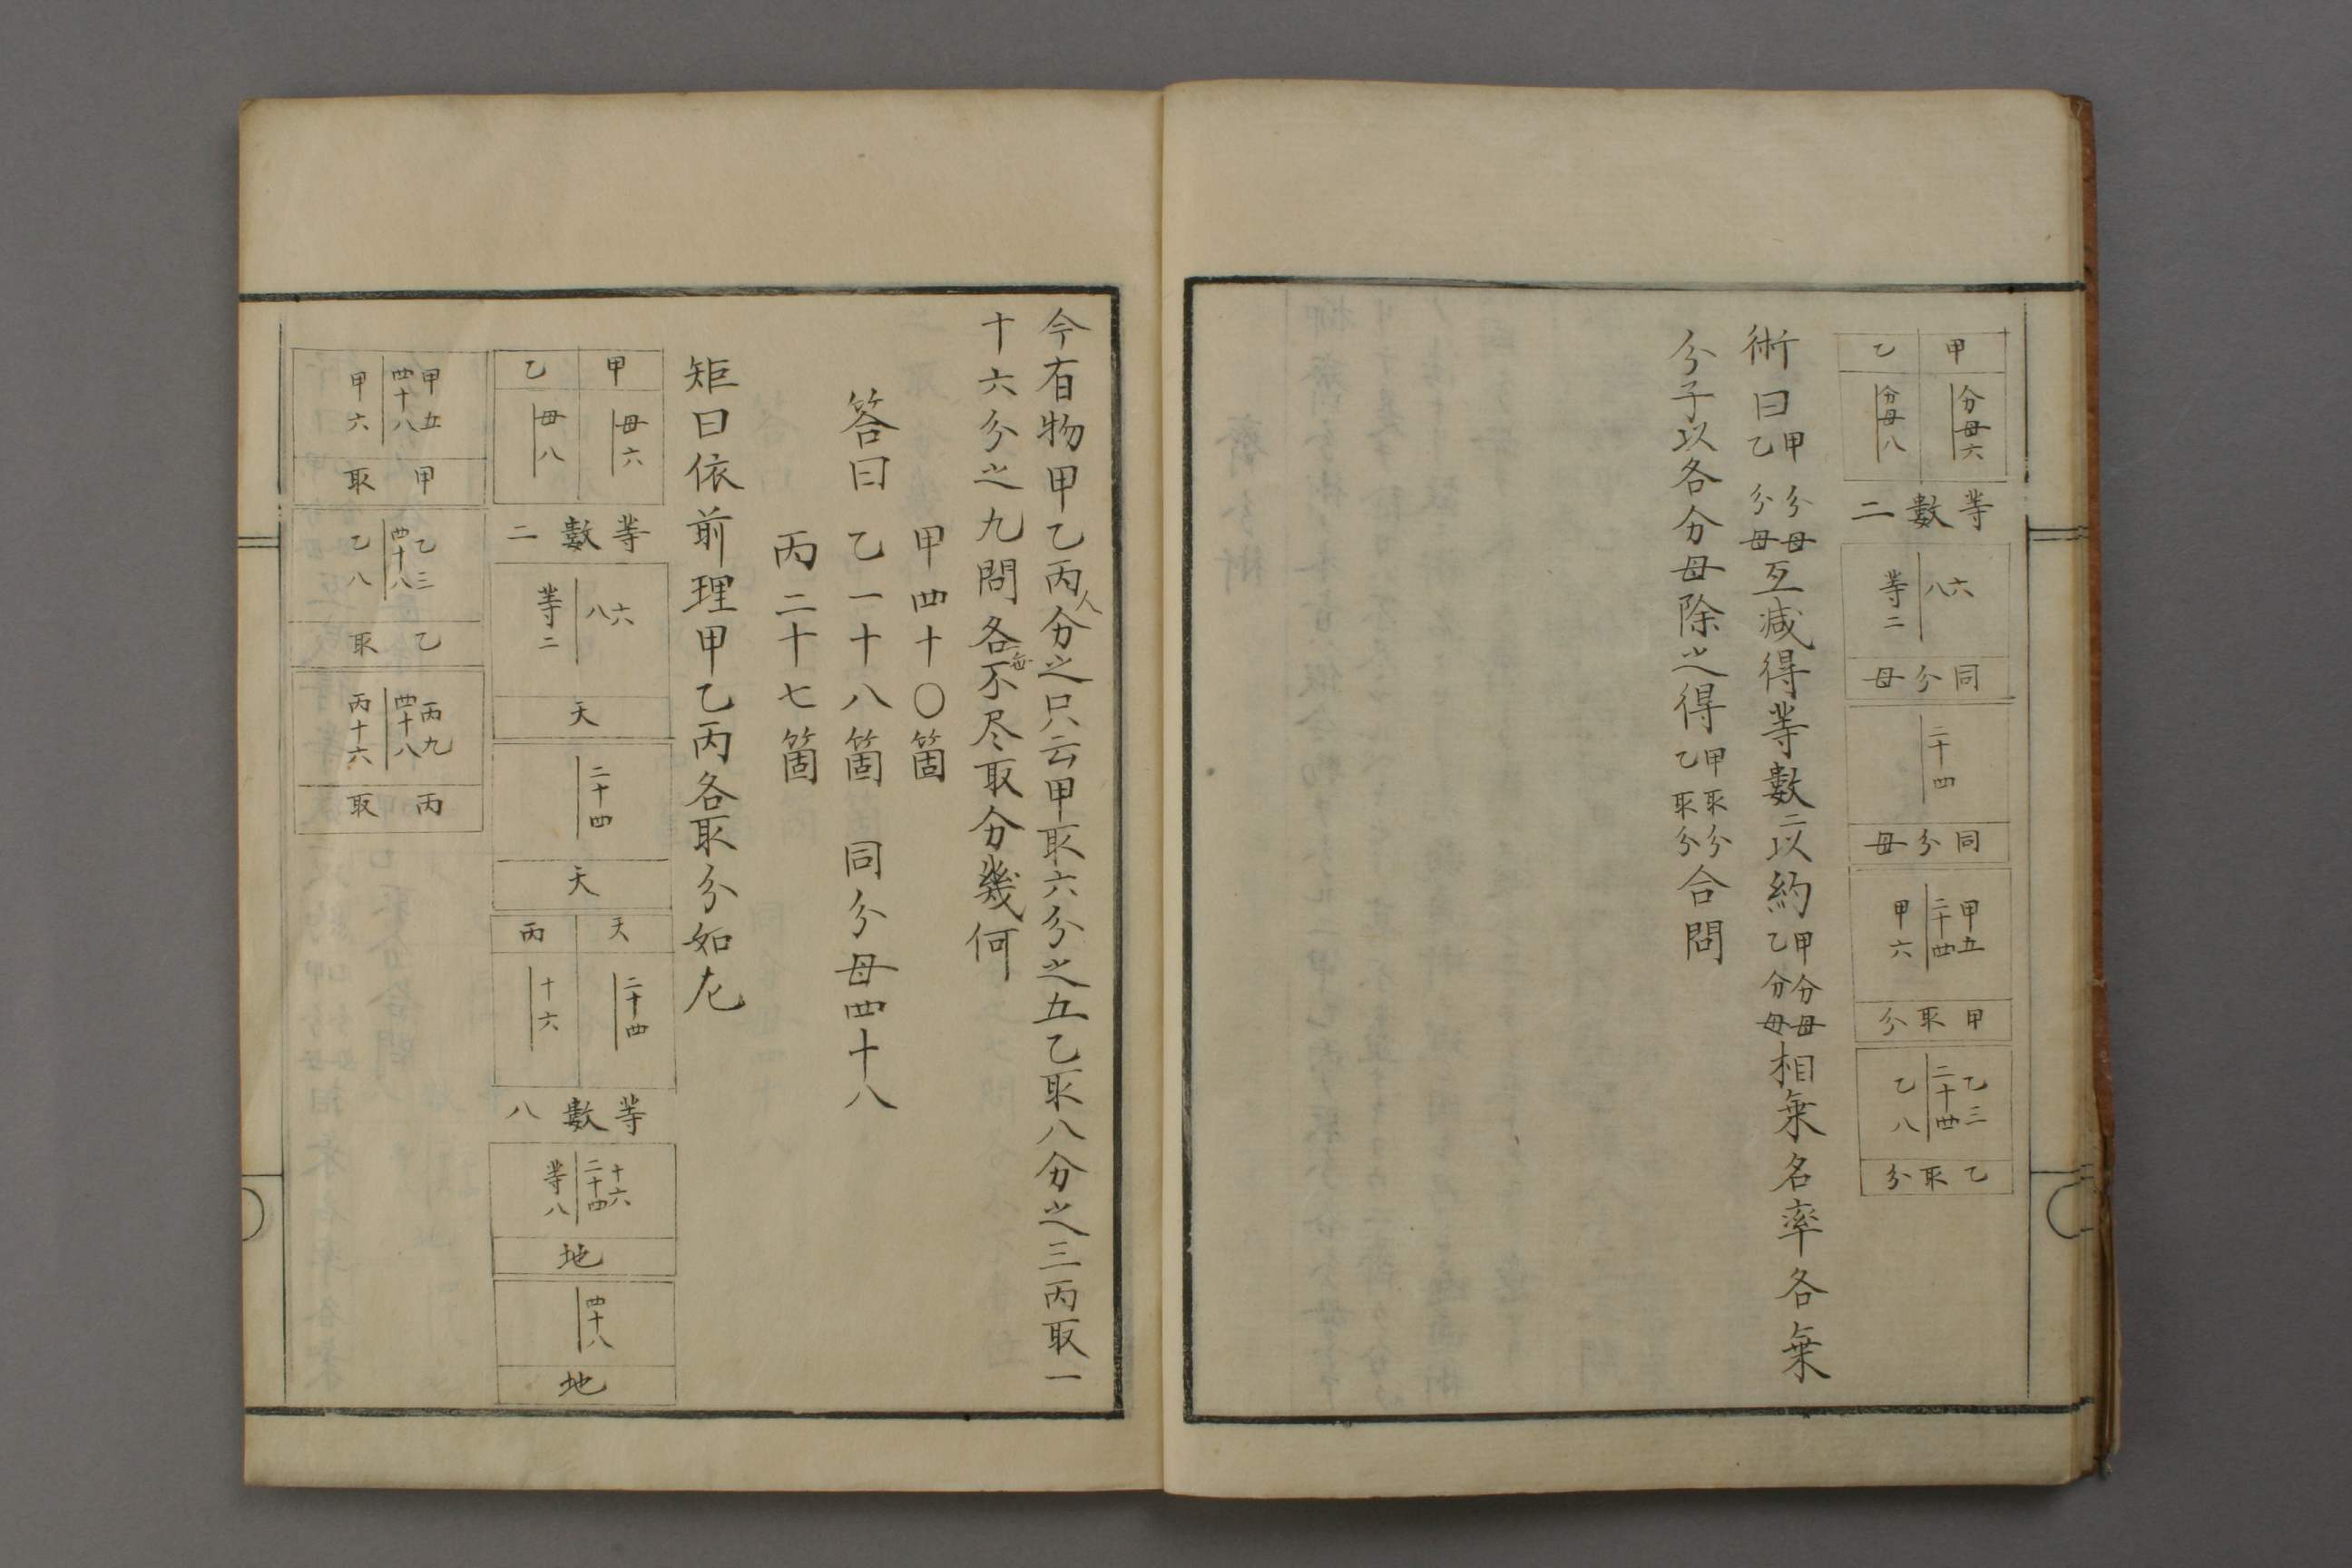 甲
分母六
乙
分母八
等數二
六
八
等二
同分母
二十四
同分母
甲五
二十四
甲六
甲取分
乙三
二十四
乙八
乙取分
術曰甲分母乙分母互減得等數二以約甲分母乙分母相乗名率各乗
分子以各分母除之得甲取分乙取分合問
今有物甲乙丙人分之只云甲取六分之五乙取八分之三丙取一
十六分之九問各無不尽取分幾何
甲四十〇箇
答曰 乙一十八箇 同分母四十八
丙二十七箇
矩曰依前理甲乙丙各取分如左
甲
母六
乙
母八
等數二
六
八
等二
天
二十四
天
天
二十四
丙
十六
等數八
十六
二十四
等八
地
四十八
地
甲五
四十八
甲六
甲取
乙三
四十八
乙八
乙取
丙九
四十八
丙十六
丙取